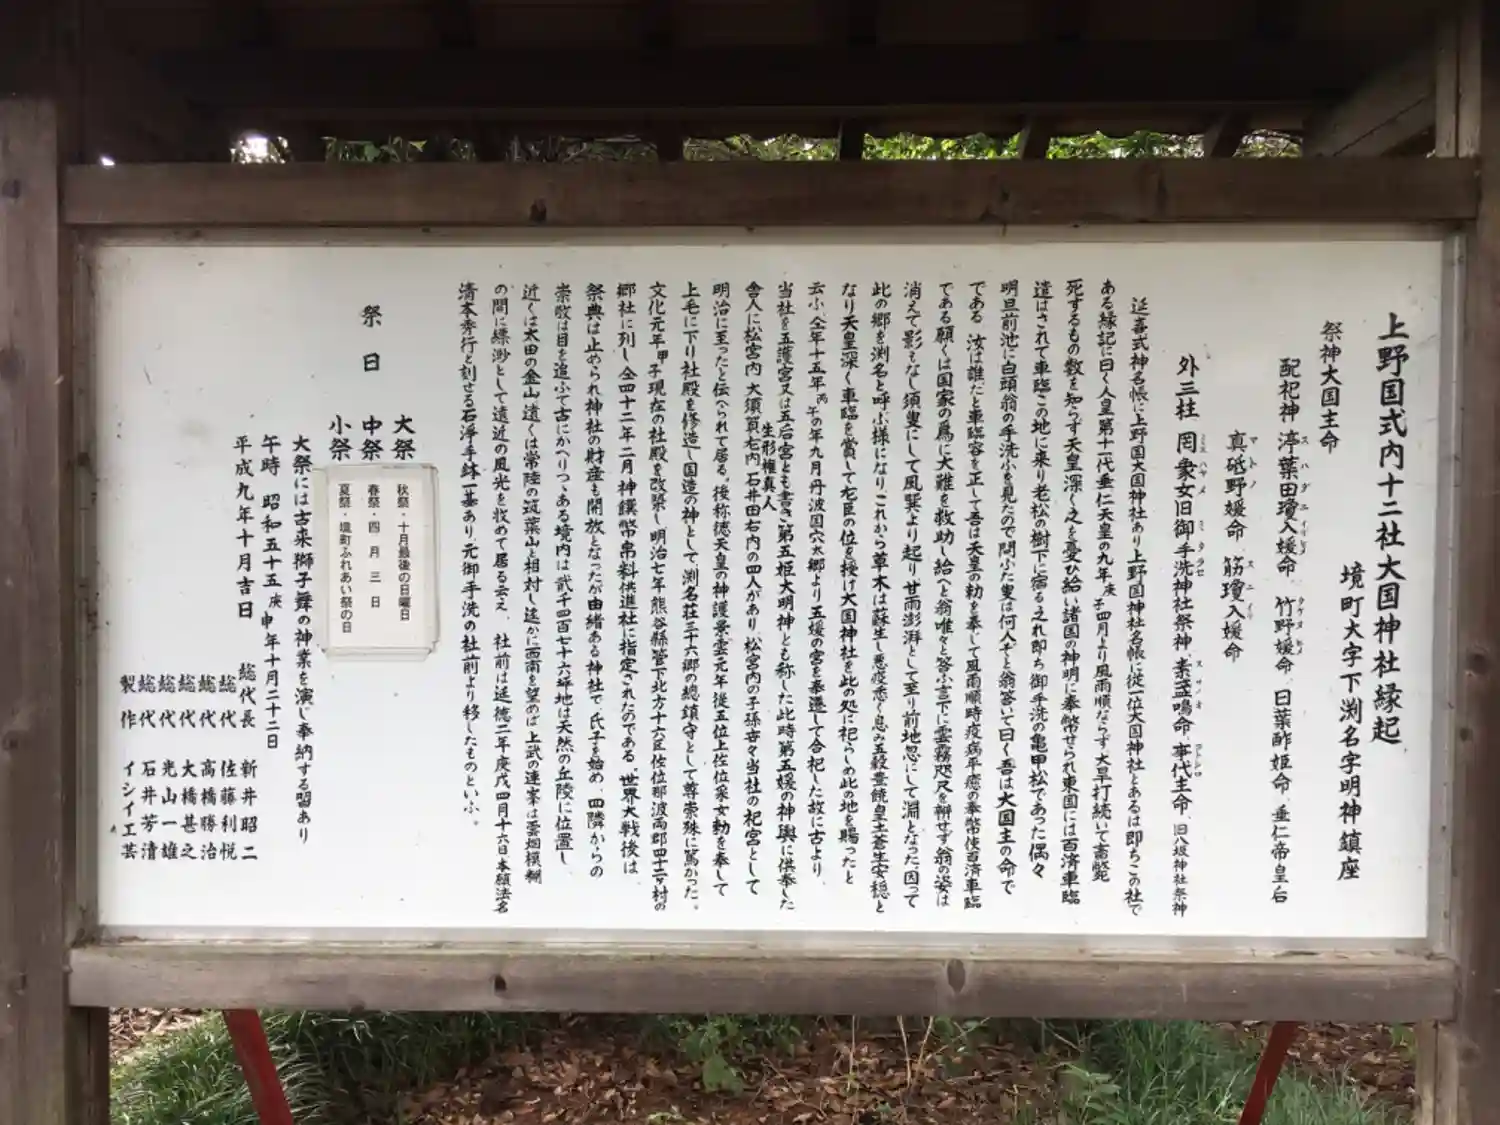 上野国式内十二社大国神社縁起
境町大字下渕名字明神鎮座
祭神大国主命
配祀神 渟葉田瓊入媛命 竹野媛命 日葉酢姫命 垂仁帝皇后
真砥野媛命 筋瓊入媛命
外三柱 罔象女旧御手洗神社祭神 素盞鳴命 事代主命 旧八坂神社祭神
延喜式神名帳に上野国大国神社あり上野国神社名帳に従一位大国神社とあるは即ちこの社で
ある縁記に曰く人皇第十一代垂仁天皇の九年庚子四月より風雨順ならず大旱打続いて畜斃
死するもの数を知らず天皇深く之を憂ひ給い諸国の神明に奉幣せられ東国には百済車臨
遣はされて車臨この地に来り老松の樹下に宿る之れ即ち御手洗の亀甲松であった偶々
明旦前池に白頭翁の手洗ふを見たので問ふた叟は何人ぞと翁答いて曰く吾は大国主の命で
ある 汝は誰だと車臨容を正して吾は天皇の勅を奉じて風雨順時疫病平癒の奉幣使百済車臨
である願くは国家の為に大難を救助し給へと翁唯々と答ふ言下に雲霧咫尺を辨せず翁の姿は
消えて影もなし須臾にして風巽より起り甘雨澎湃として至り前地忽にして淵となった因って
此の郷を渕名と呼ぶ様になり これから草木は蘇生し悪疫悉く息み五穀豊饒皇土蒼生安穏と
なり天皇深く車臨を賞して左臣の位を授け大国神社を此の処に祀らしめ此の地を賜ったと
云ふ 仝年十五年丙午の年九月丹波国穴太郷より五媛の宮を奉遷して合祀した故に古より
当社を五護宮又は五后宮とも書き第五姫大明神とも称した此時第五媛の神輿に供奉した
舎人に松宮内 大須賀左内 石井田右内の四人があり 松宮内の子孫世々当社の祀官として
生形権真人
明治に至ったと伝へられて居る。後称徳天皇の神護景雲元年従五位上佐位采女勅を奉じて
上毛に下り社殿を修造し国造の神として、渕名荘三十六郷の総鎮守として尊崇殊に篤かった。
文化元年甲子現在の社殿を改築し明治七年熊谷縣管下北方十六区佐位那波両郡四十二ヶ村の
郷社に列し 仝四十二年二月神饌幣帛料供進社に指定されたのである。世界大戦後は
祭典は止められ神社の財産も開放となったが由緒ある神社で、氏子を始め、四隣からの
崇敬は目を追ふて古にかへりつゝある境内は貳千四百七十六坪地は天然の丘陵に位置し
近くは太田の金山遠くは常陸の筑葉山と相対し遙かに西南を望めば上武の連峯は雲烟模糊
の間に縹渺として遠近の風光を收めて居る云え 社前は延徳二年庚戌四月十六日本願法名
清本秀行と刻せる石浄手鉢一基あり元御手洗の社前より移したものといふ。
祭日 大祭 秋祭・十月最後の日曜日
中祭 春祭・四月三日
小祭 夏祭・境町ふれあい祭の日
大祭には古来獅子舞の神業を演じ奉納する習あり
午時 昭和五十五庚申年十月二十二日
平成九年十月吉日
総代長 新井昭二
総代 佐藤利悦
総代 高橋勝治
総代 大橋甚之
総代 光山一雄
総代 石井芳清
製作 イシイ工芸